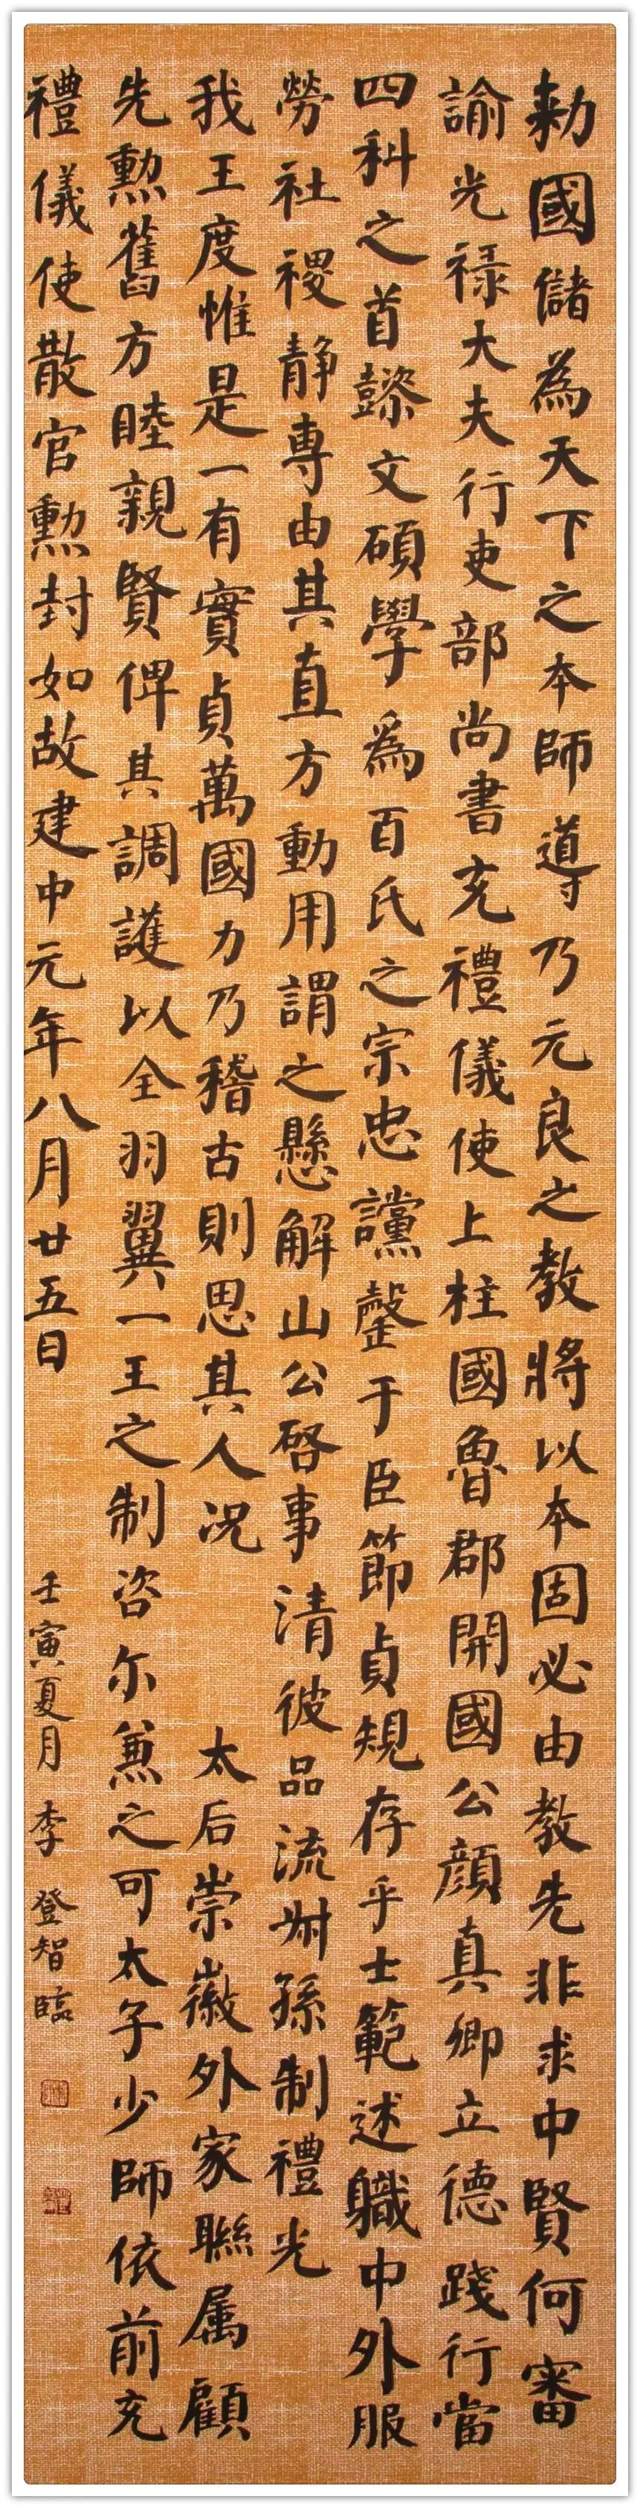 勑國儲為天下之本師導乃元良之教將以本固必由教先非求中賢何審
諭光禄大夫行吏部尚書充禮儀使上柱國魯郡開國公顏真卿立德踐行當
四科之首懿文碩學為百氏之宗忠讜罄于臣節貞規存乎士範述職中外服
勞社稷静專由其直方動用謂之懸解山公啓事清彼品流叔孫制禮光
我王度惟是一有實貞萬國力乃稽古則思其人况 太后崇徽外家聯属顧
先勲舊方睦親賢俾其調護以全羽翼一王之制咨尔兼之可太子少師依前充
禮儀使散官勲封如故建中元年八月廿五日
壬寅夏月李登智臨